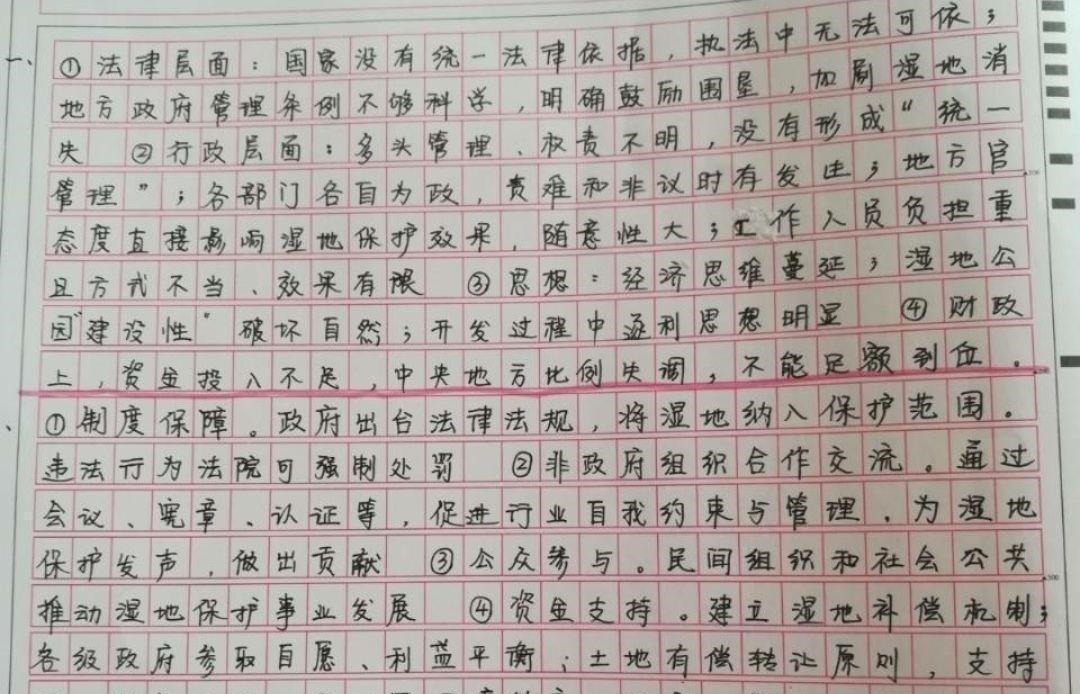 一、①法律层面：国家没有统一法律依据，执法中无法可依；
地方政府管理条例不够科学，明确鼓励围垦，加剧湿地消
失 ②行政层面：多头管理、权责不明，没有形成“统一
管理”；各部门各自为政，责难和非议时有发生；地方官
态度直接影响湿地保护效果，随意性大；工作人员负担重
且方式不当、效果有限 ③思想：经济思维蔓延；湿地公
园“建设性”破坏自然；开发过程中逐利思想明显 ④财政
上，资金投入不足，中央地方比例失调，不能足额到位。
、①制度保障。政府出台法律法规，将湿地纳入保护范围。
违法行为法院可强制处罚 ②非政府组织合作交流。通过
会议、宪章、认证等，促进行业自我约束与管理，为湿地
保护发声，做出贡献 ③公众参与。民间组织和社会公共
推动湿地保护事业发展 ④资金支持。建立湿地补偿机制；
各级政府参取自愿、利益平衡、土地有偿转让原则，支持